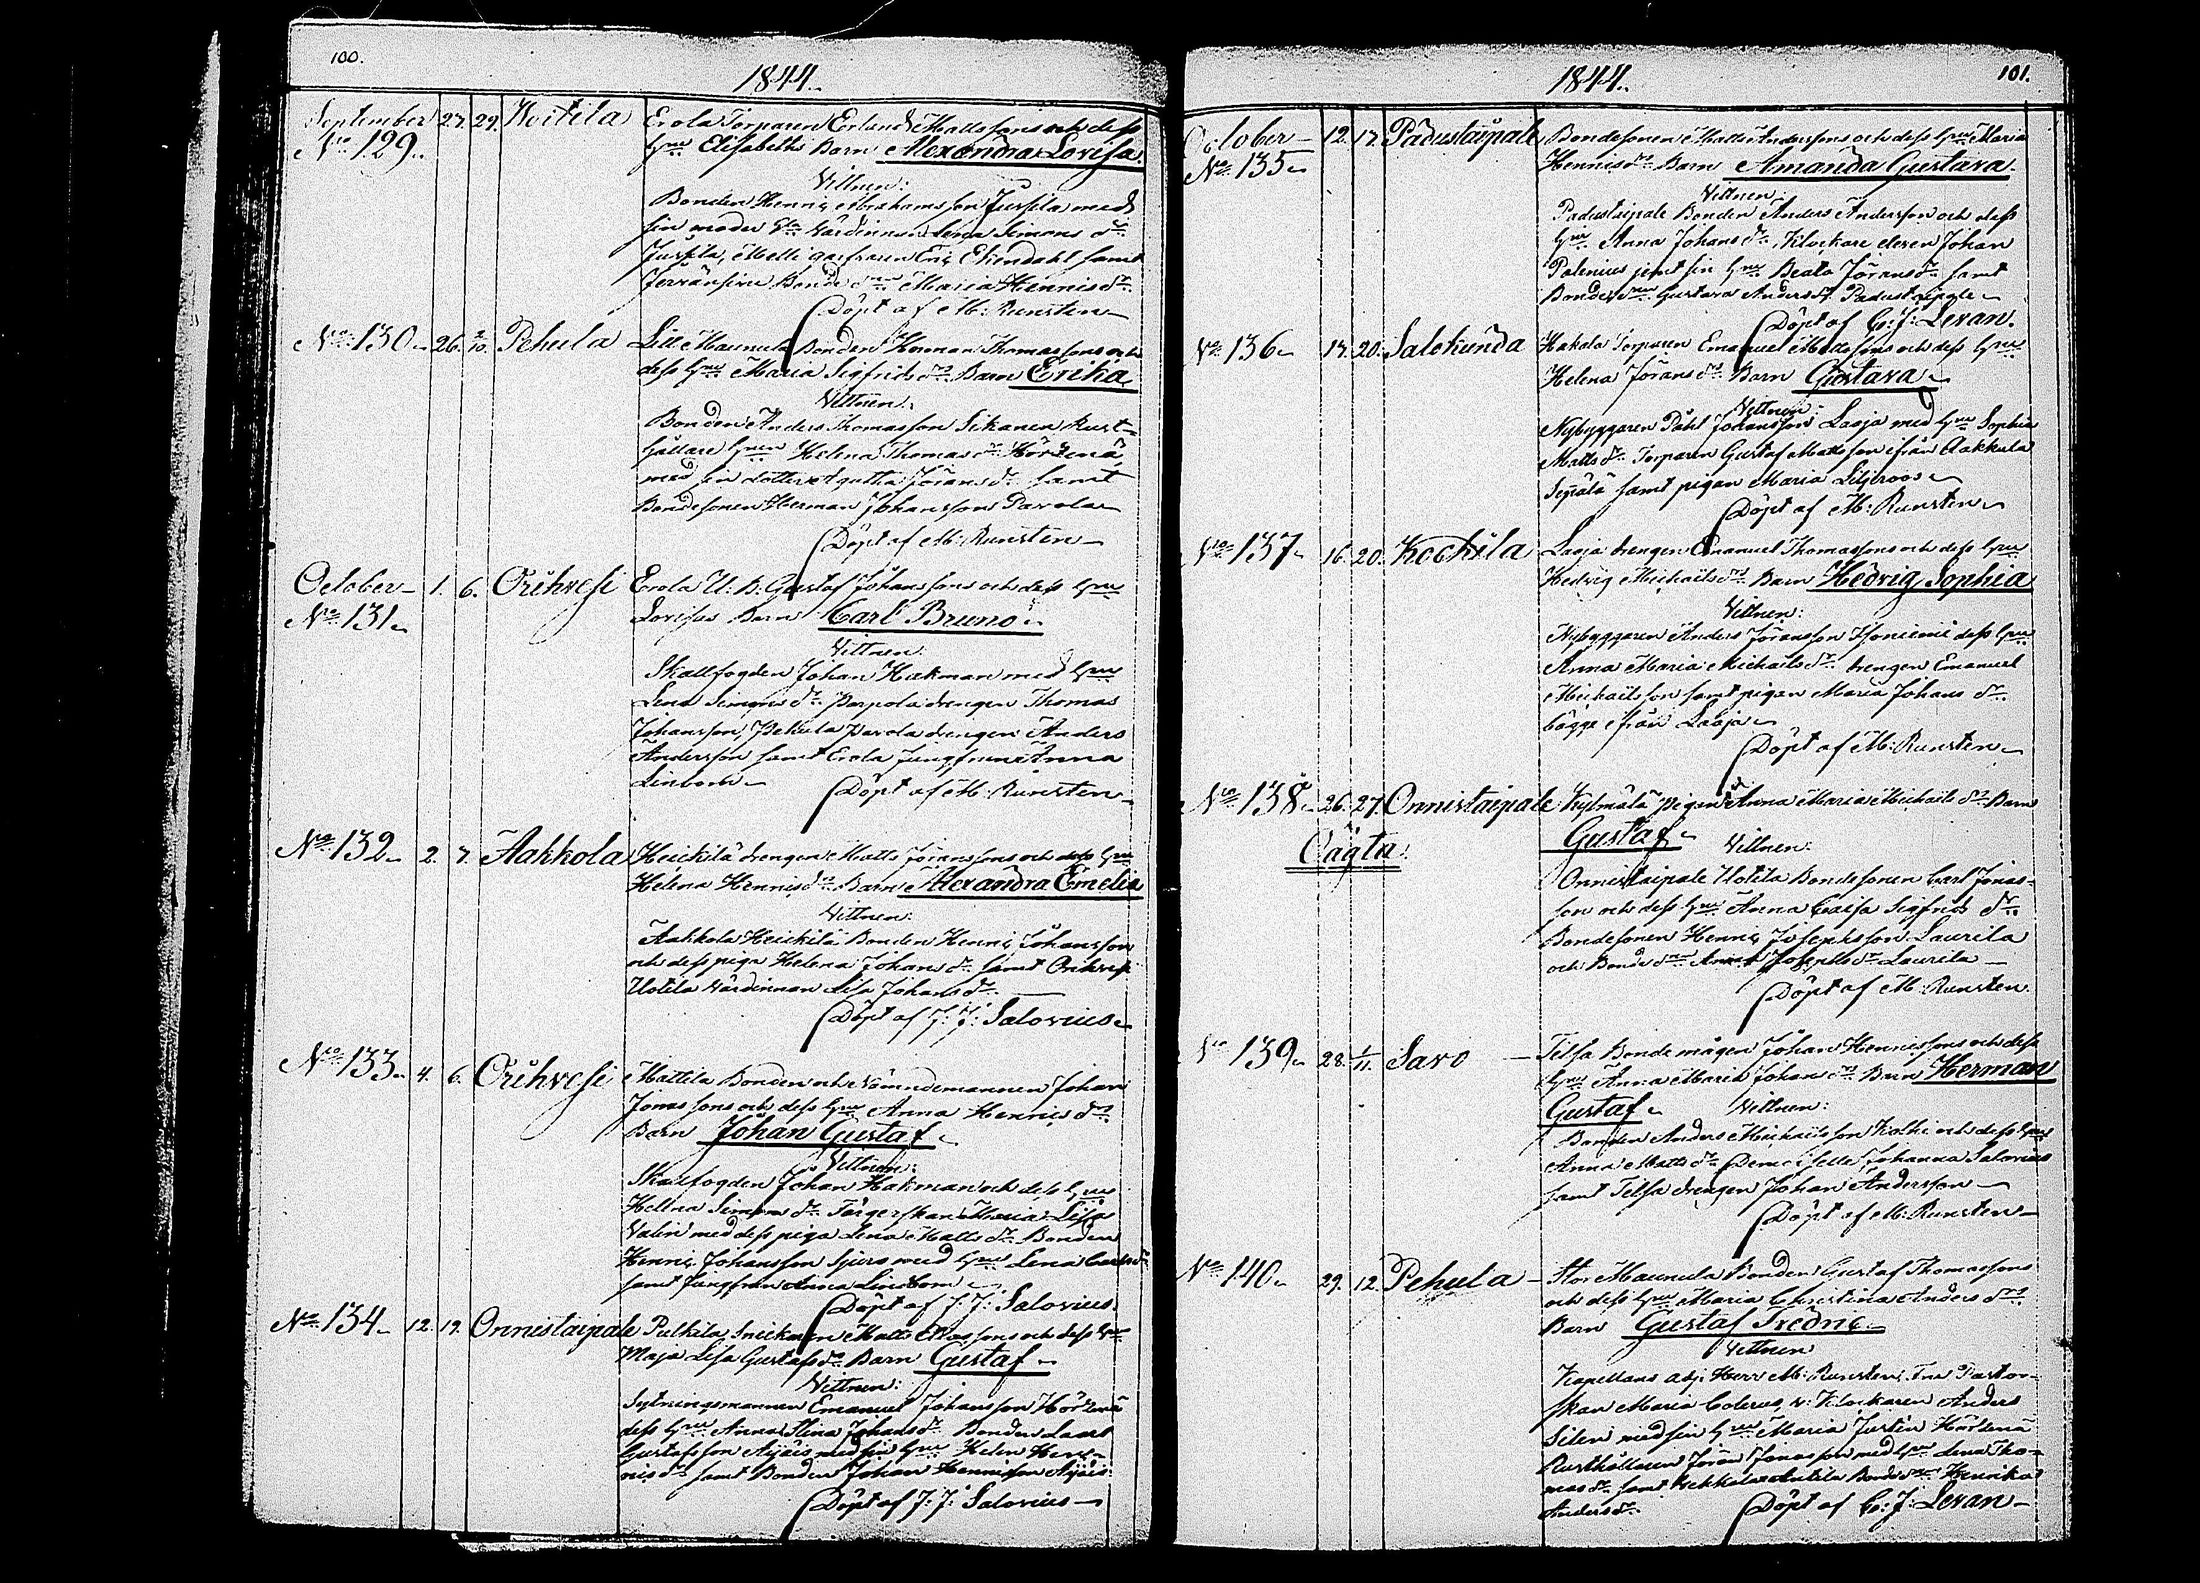 100.
1844.
September 27. 29. Woitila Erola Torparen Erland Mattssons och dess
No 129. hru Elisabeths Barn Alexandra Lovisa.
Vittnen:
Bonden Henric Abrahamsson Jussila med
sin moder Gla Värdinnan Lena Simons dr
Jussila, Melli garfvaren Eric Ekendahl samt
Bonde dren Maria Hennis dr
Döpt af M: Runsten
No 130 26. 2/10. Pehula Lill Maunula Bonden Herman Thomassons och
dess hru Maria Sigfrids drs Barn Erika
Vittnen:
Bonden Anders Thomasson Sikanen Rust-
hållare hrun Helena Thomas dr Hörtenä
med sin dotter Agatha Jörans dr samt
Bondesonen Herman Johansson Pavola
Döpt af M: Runsten
October 1. 6. Orihvesi Erola U: B: Gustaf Johanssons och dess hru
No 131. Lovisas Barn Carl Bruno.
Vittnen:
Skallfogden Johan Hakman med hru
Lena Simons dr Parpola drengen Thomas
Johansson, Pehula Pavola drengen Anders
Andersson samt Erola Jungfrun Anna
Linbom
Döpt af M: Runsten
No 132 2. 7. Aakkola Heickilä drengen Matts Jöranssons och dess hru
Helena Hennis drs Barn Alexandra Emelia
Vittnen:
Aakkola Heickilä Bonden Henric Johansson
och dess piga Helena Johans dr samt Orihvesi
Uotila Värdinnan Lisa Johans dr
Döpt af J: J: Salovius
No 133 4. 6. Orihvesi Mattila Bonden och Nämndemannen Johan
Jonassons och dess hru Anna Hennis drs
Barn Johan Gustaf
Vittnen:
Skallfogden Johan Hakman och dess hru
Helena Simons dr Färgerskan Maria Lisa
Valin med dess piga Lena Matts dr Bonden
Henric Johansson Sjurs med hru Lena Carls dr
samt Jungfrun Anna Lindbom
Döpt af J: J: Salovius.
No 134 12. 19. Onnistaipale Pulkila Snickaren Matts Mattssons och dess hru
Maja Lisa Gustafs drs Barn Gustaf
Vittnen:
Sytningsmannen Emanuel Johansson Hörtenä
dess hru Anna Stina Johans dr Bonden Lars
Gustafsson Äijäis med sin hru Helen Hen-
nis dr samt Bonden Johan Hennisson Äijäis
Döpt af J: J: Salovius
1844.
101.
October 12. 17. Padustaipale Bondesonen Matts Anderssons och dess hru Maria
No 135 Hennis drs Barn Amanda Gustava.
Vittnen:
Padustaipale Bonden Anders Andersson och dess
hru Anna Johans dr, Klockare eleven Johan
Polenius jemt sin hru Beata Jörans dr samt
Bonde dren Gustava Anders dr Padustaipale
Döpt af C: J: Levan.
No 136 14. 20. Salokunda Hakala Torparen Emanuel Mattssons och dess hru
Helena Jörans drs Barn Gustava
Vittnen:
Nybyggaren Påhl Johansson Laaja med hru Sophia
Matts dr Torparen Gustaf Mattsson ifrån Aakkula
Seppälä samt pigan Maria Liljeroos
Döpt af M: Runsten
No 137 16. 20. Kockila Laaja drengen Emanuel Thomassons och dess hru
Hedvig Michaels drs Barn Hedvig Sophia
Vittnen:
Nybyggaren Anders Jöransson Isoniemi dess hru
Anna Maria Michaels dr drengen Emanuel
Michaelsson samt pigan Maria Johans dr
bägge ifrån Laaja
Döpt af M: Runsten
No 138 26. 27. Onnistaipale Kylmälä pigan Anna Maria Michaels drs Barn
Oägta. Gustaf
Vittnen:
Onnistaipale Uotila Bondesonen Carl Jonas-
son och dess hru Anna Caisa Sigfrids dr
Bondesonen Henric Josephsson Laurila
och Bonde dren Anna Josephs dr Laurila
Döpt af M: Runsten.
No 139 28. 1/11. Savo Tilsa Bonde mågen Johan Hennissons och dess
hru Anna Maria Johans drs Barn Herman
Gustaf Vittnen:
Bonden Anders Michaelsson Kolhi och dess hru
Anna Matts dr Demoiselle Johanna Salovius
samt Tilsa drengen Johan Andersson
Döpt af M: Runsten
No 140 29. 12. Pehula Stor Maunula Bonden Gustaf Thomassons
och dess hru Maria Christina Anders drs
Barn Gustaf Fredric
Vittnen
Kapellans adj. Herr M: Runsten, Fru Pastor-
skan Maria Colerus, v: Klockaren Anders
Silen med sin hru Maria Justin Hörtenä
Rusthållaren Jöran Jonasson med hru Lena Tho-
mas dr samt Anttila Bonde dren Henrika
Anders dr
Döpt af C: J: Levan